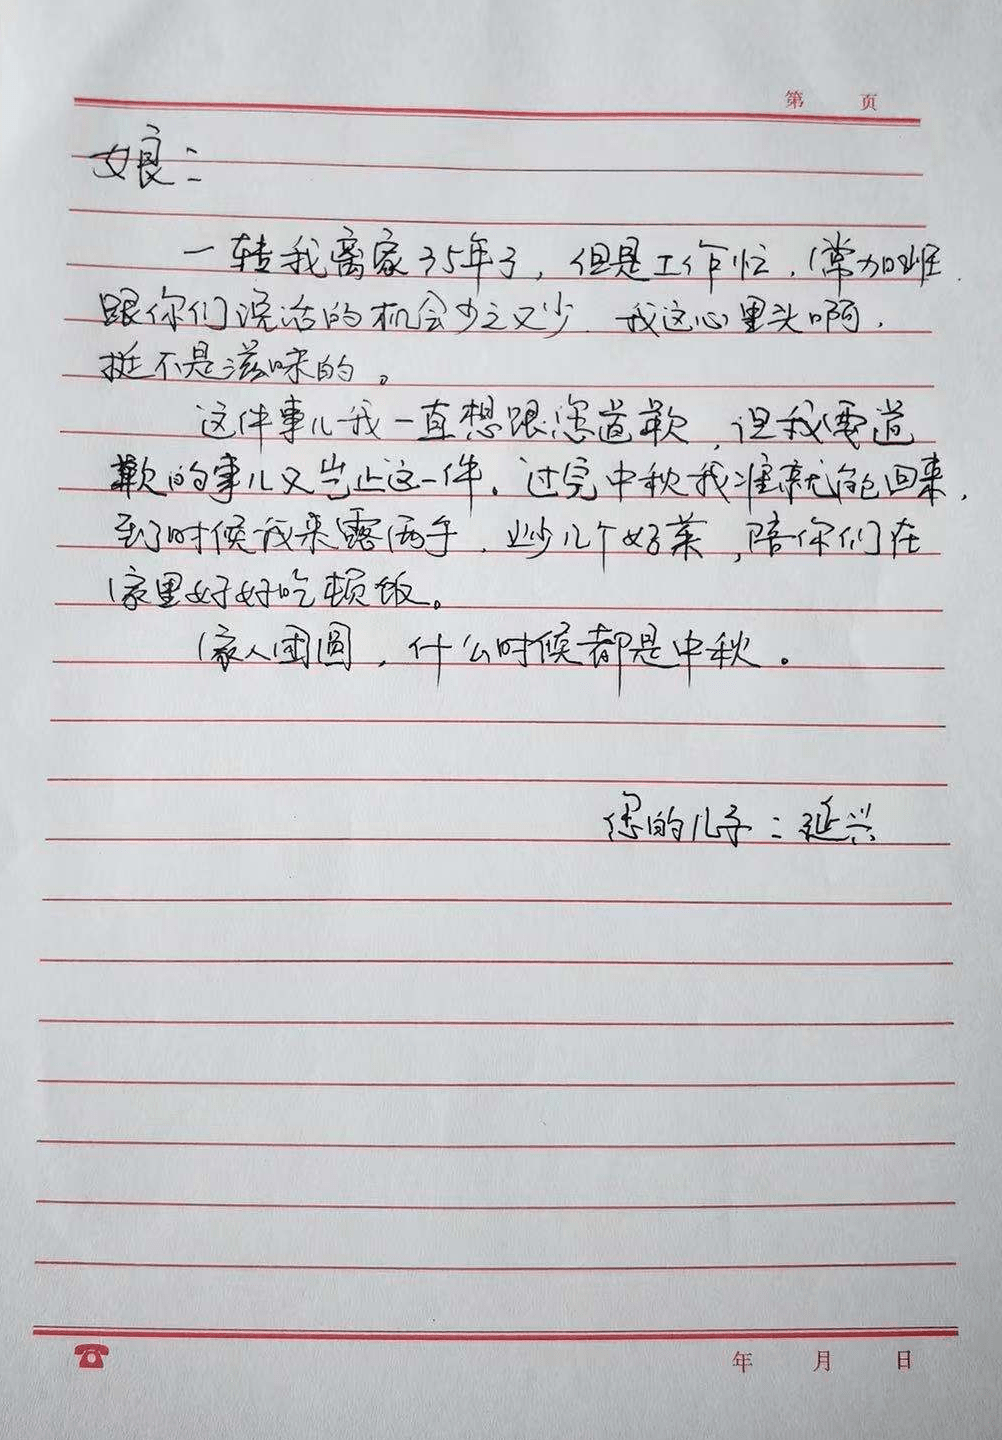 第 页
娘：
一转我离家35年了，但是工作忙，常加班，
跟你们说话的机会少之又少，我这心里头啊，
挺不是滋味的。
这件事儿我一直想跟您道歉，但我要道
歉的事儿又岂止这一件。过完中秋我准就能回来，
到了时候我来露两手，炒几个好菜，陪你们在
家里好好吃顿饭。
家人团圆，什么时候都是中秋。
您的儿子：延兴
年 月 日